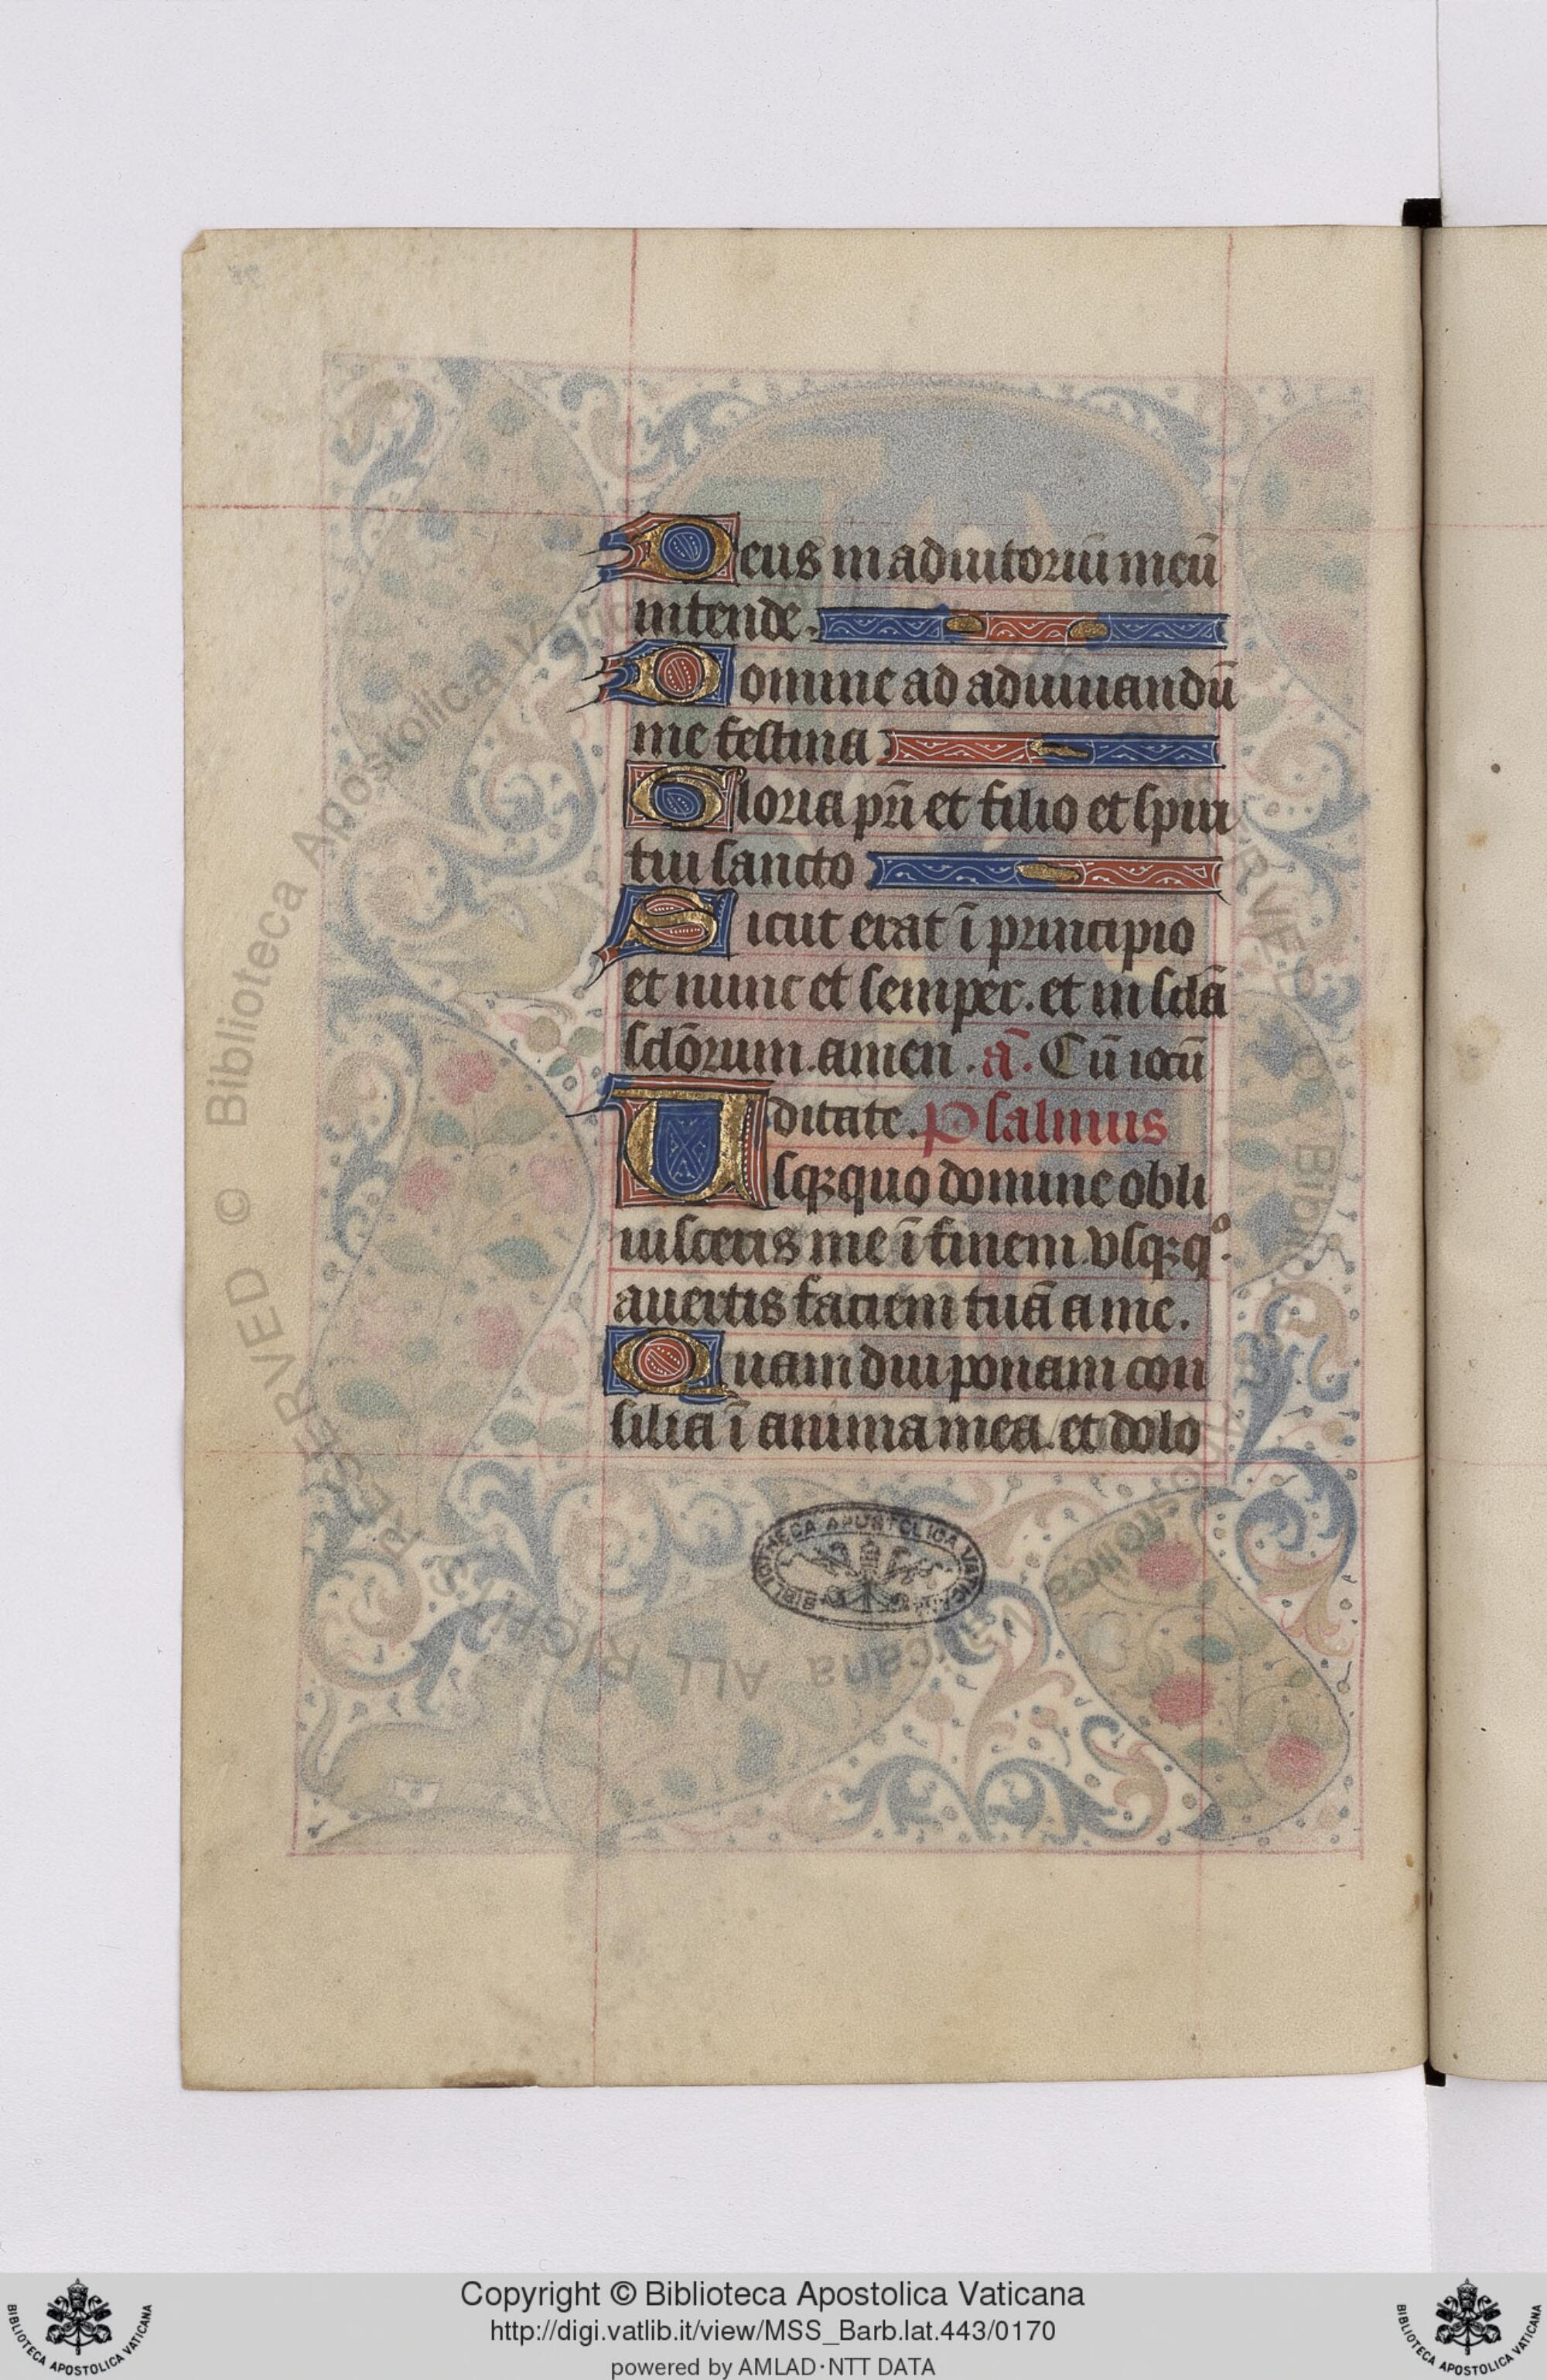 Deus in adiutoriū meū
intende.
Domine ad adiuuandū
me festina
Gloria pr̄i et filio et spiri
tui sancto
Sicut erat ī principio
et nunc et semper. et in sc̄la
sc̄lorum. amen. a̅. Cū iocū
ditate. Psalmus
Usqꝫquo domine obli
uisceris me ī finem. vsqꝫqͦ.
auertis faciem tuā a me.
Quam diu ponam con
silia ī anima mea. et dolo
BIBLIOTHECA APOSTOLICA VATICANA
© Biblioteca Apostolica Vaticana ALL RIGHTS RESERVED
Copyright © Biblioteca Apostolica Vaticana
http://digi.vatlib.it/view/MSS_Barb.lat.443/0170
powered by AMLAD·NTT DATA
BIBLIOTECA APOSTOLICA VATICANA
BIBLIOTECA APOSTOLICA VATICANA